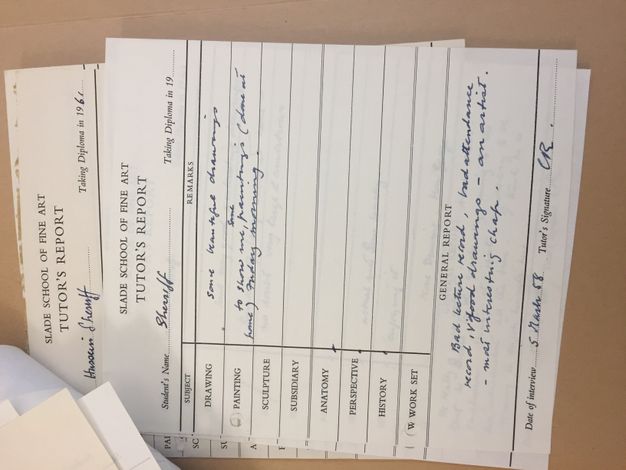 SLADE SCHOOL OF FINE ART
TUTOR'S REPORT
Hussein Sherriff Taking Diploma in 1961
SLADE SCHOOL OF FINE ART
TUTOR'S REPORT
Student's Name Sherriff Taking Diploma in 19
SUBJECT REMARKS
DRAWING some beautiful drawings
PAINTING to show me, some paintings (done at
home) Friday morning.
SCULPTURE
SUBSIDIARY
ANATOMY
PERSPECTIVE
HISTORY
W WORK SET
GENERAL REPORT
Bad lecture record, bad attendance
record, v. good drawings – an artist.
– most interesting chap.
Date of interview 5 March 58 Tutor's Signature CR.